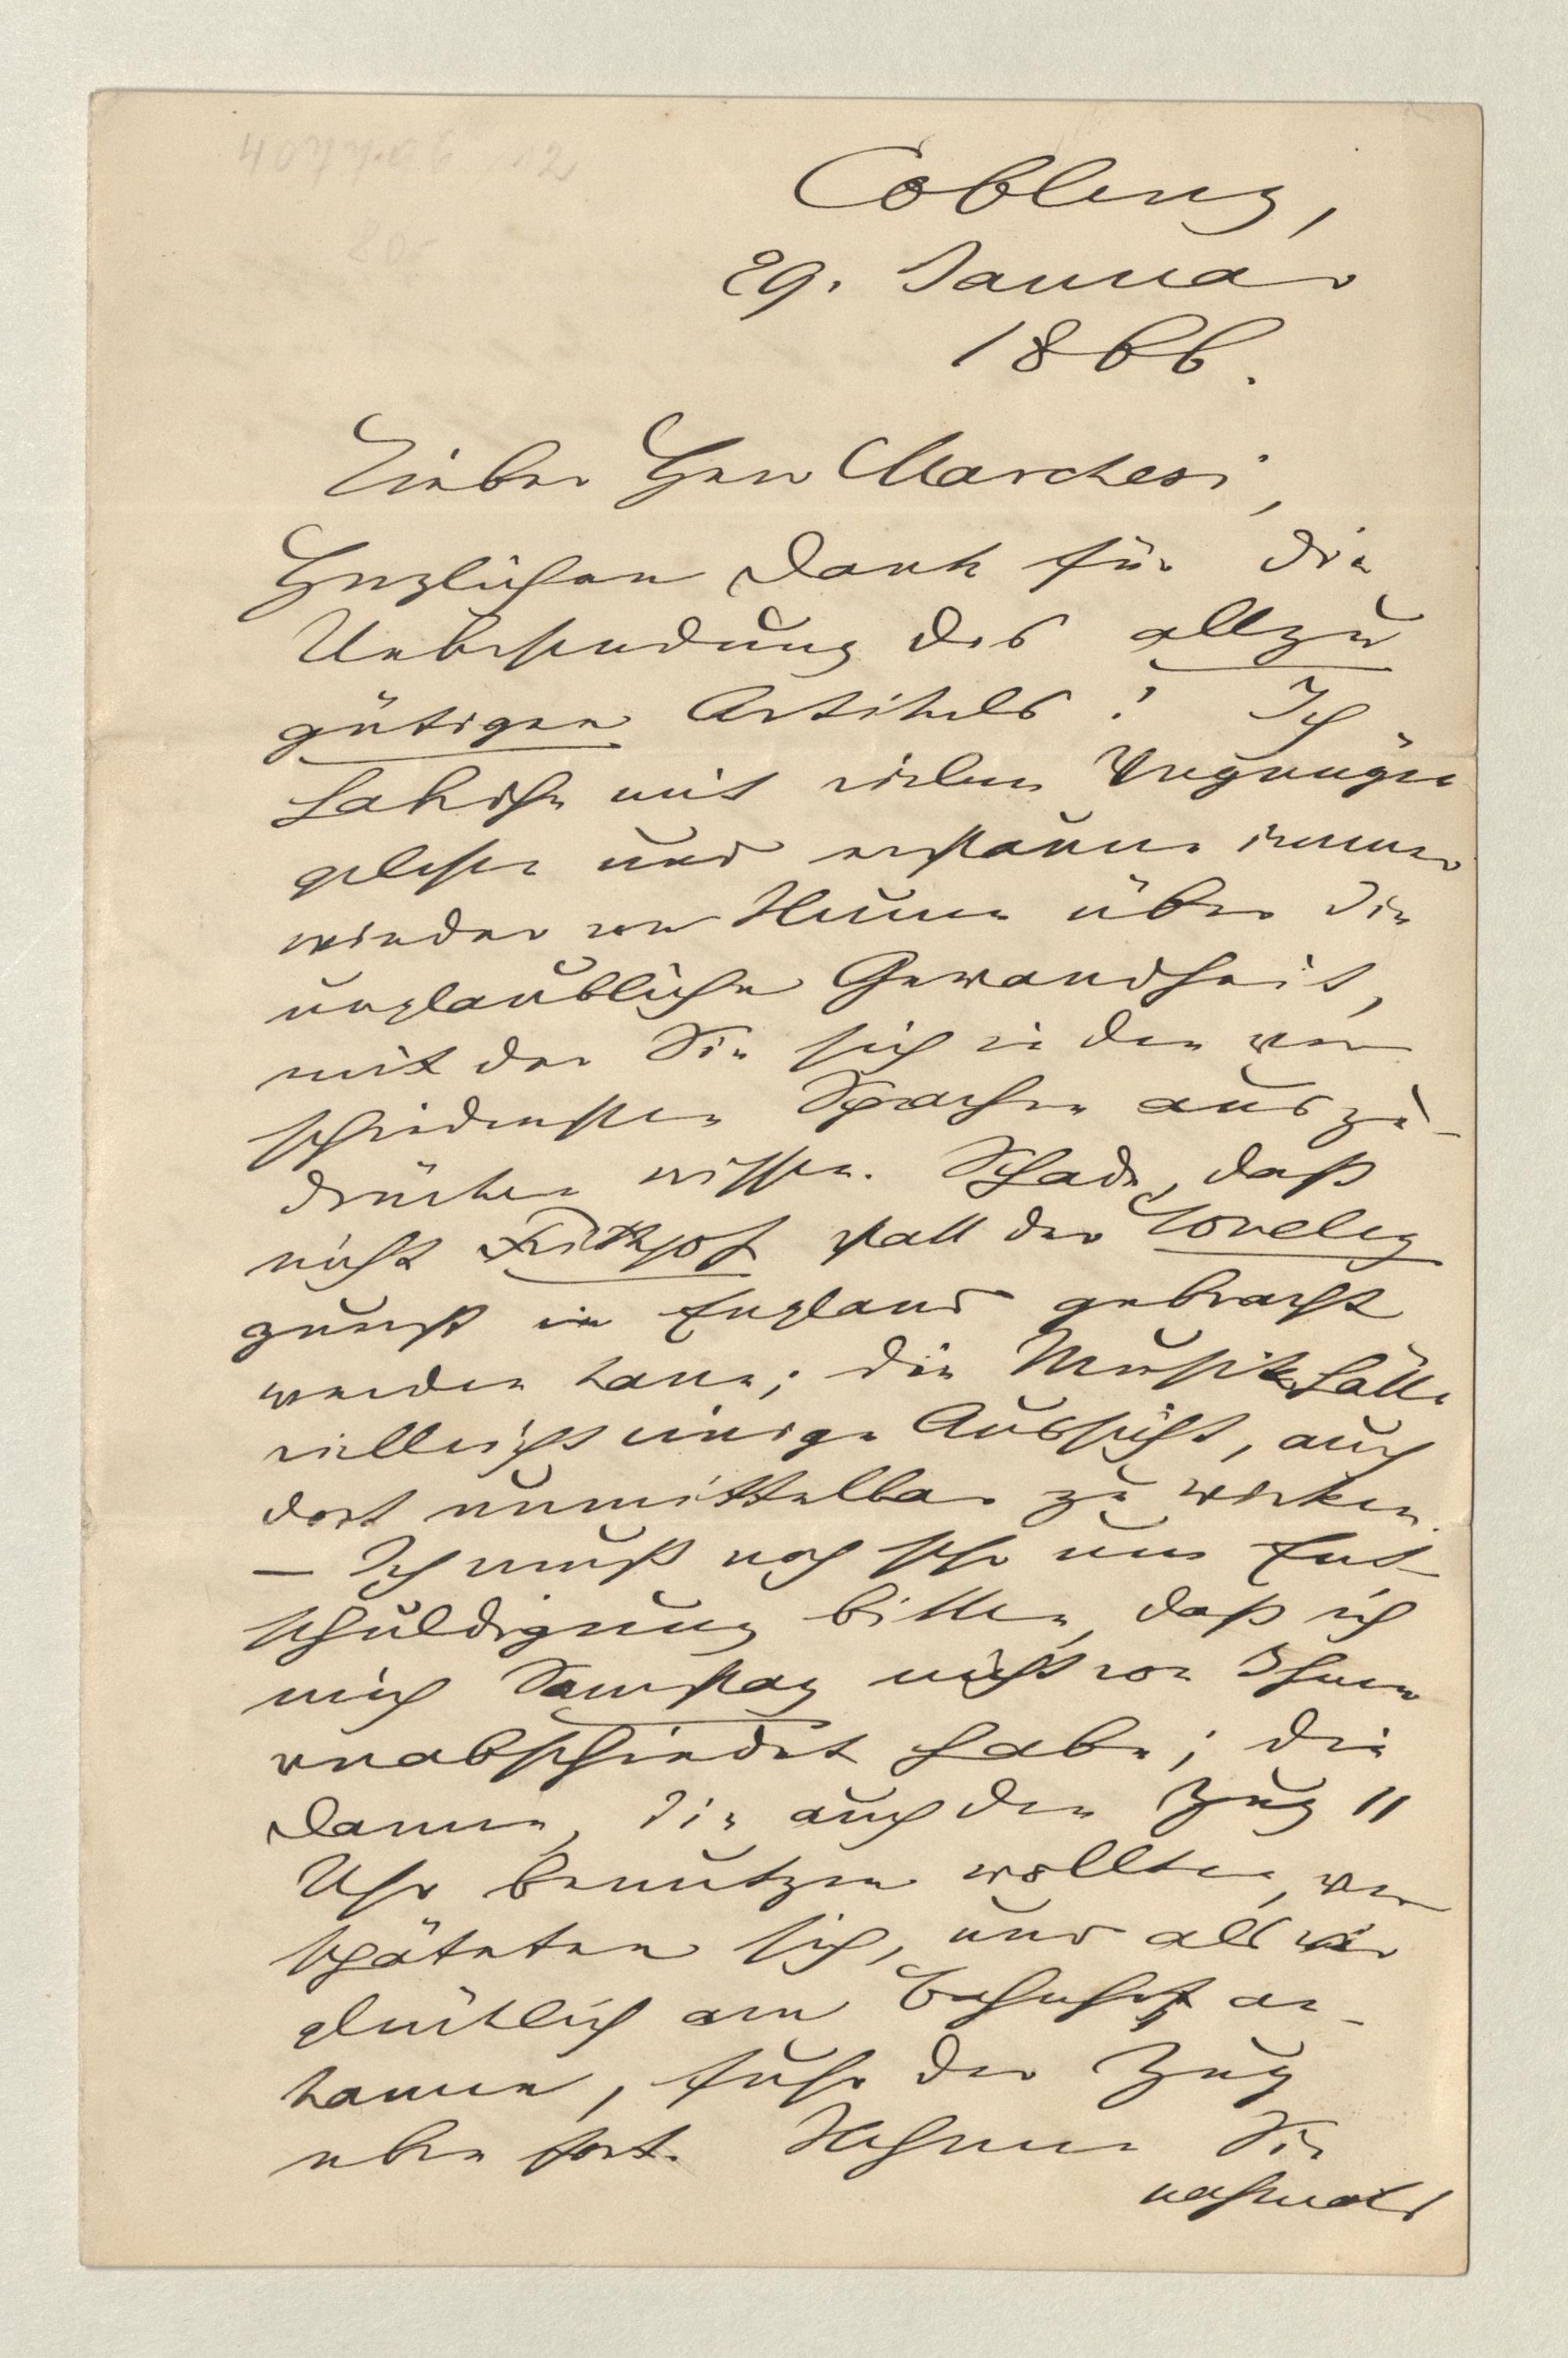 Coblenz,
29. Januar
1866.
Lieber Herr Marchesi,
Herzlichen Dank für die
Uebersendung des allzu
gütigen Artikels! Ich
habe ihn mit vielem Vergnügen
gelesen und erstaune immer
wieder von Neuem über die
unglaubliche Gewandheit,
mit der Sie sich in den ver
schiedensten Sprachen auszu-
drücken wissen. Schade, daß
nicht Frithjof statt der Loreley
zuerst in England gebracht
werden kann; die Musik hätte
vielleicht einige Aussicht, auch
dort unmittelbar zu wirken.
— Ich muß noch sehr um Ent-
schuldigung bitten, daß ich
mich Samstag nicht von Ihnen
verabschiedet habe; die
Damen, die auch den Zug 11
Uhr benutzen wollten, ver
späteten sich, und als wir
glücklich am Bahnhof an-
kamen, fuhr der Zug
eben fort. Nehmen Sie
nochmals